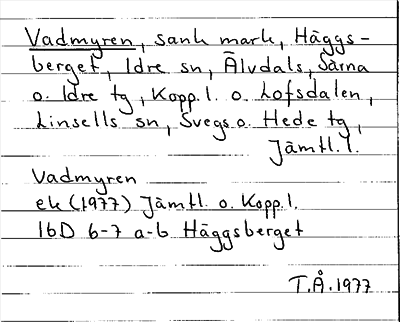 Vadmyren, sank mark, Häggs-
berget, Idre sn, Älvdals, Särna
o. Idre tg, Kopp.l. o. Lofsdalen,
Linsells sn, Svegs o. Hede tg,
Jämtl.l.
Vadmyren
ek (1977) Jämtl. o. Kopp.l.
16D 6-7 a-b Häggsberget
T.Å. 1977